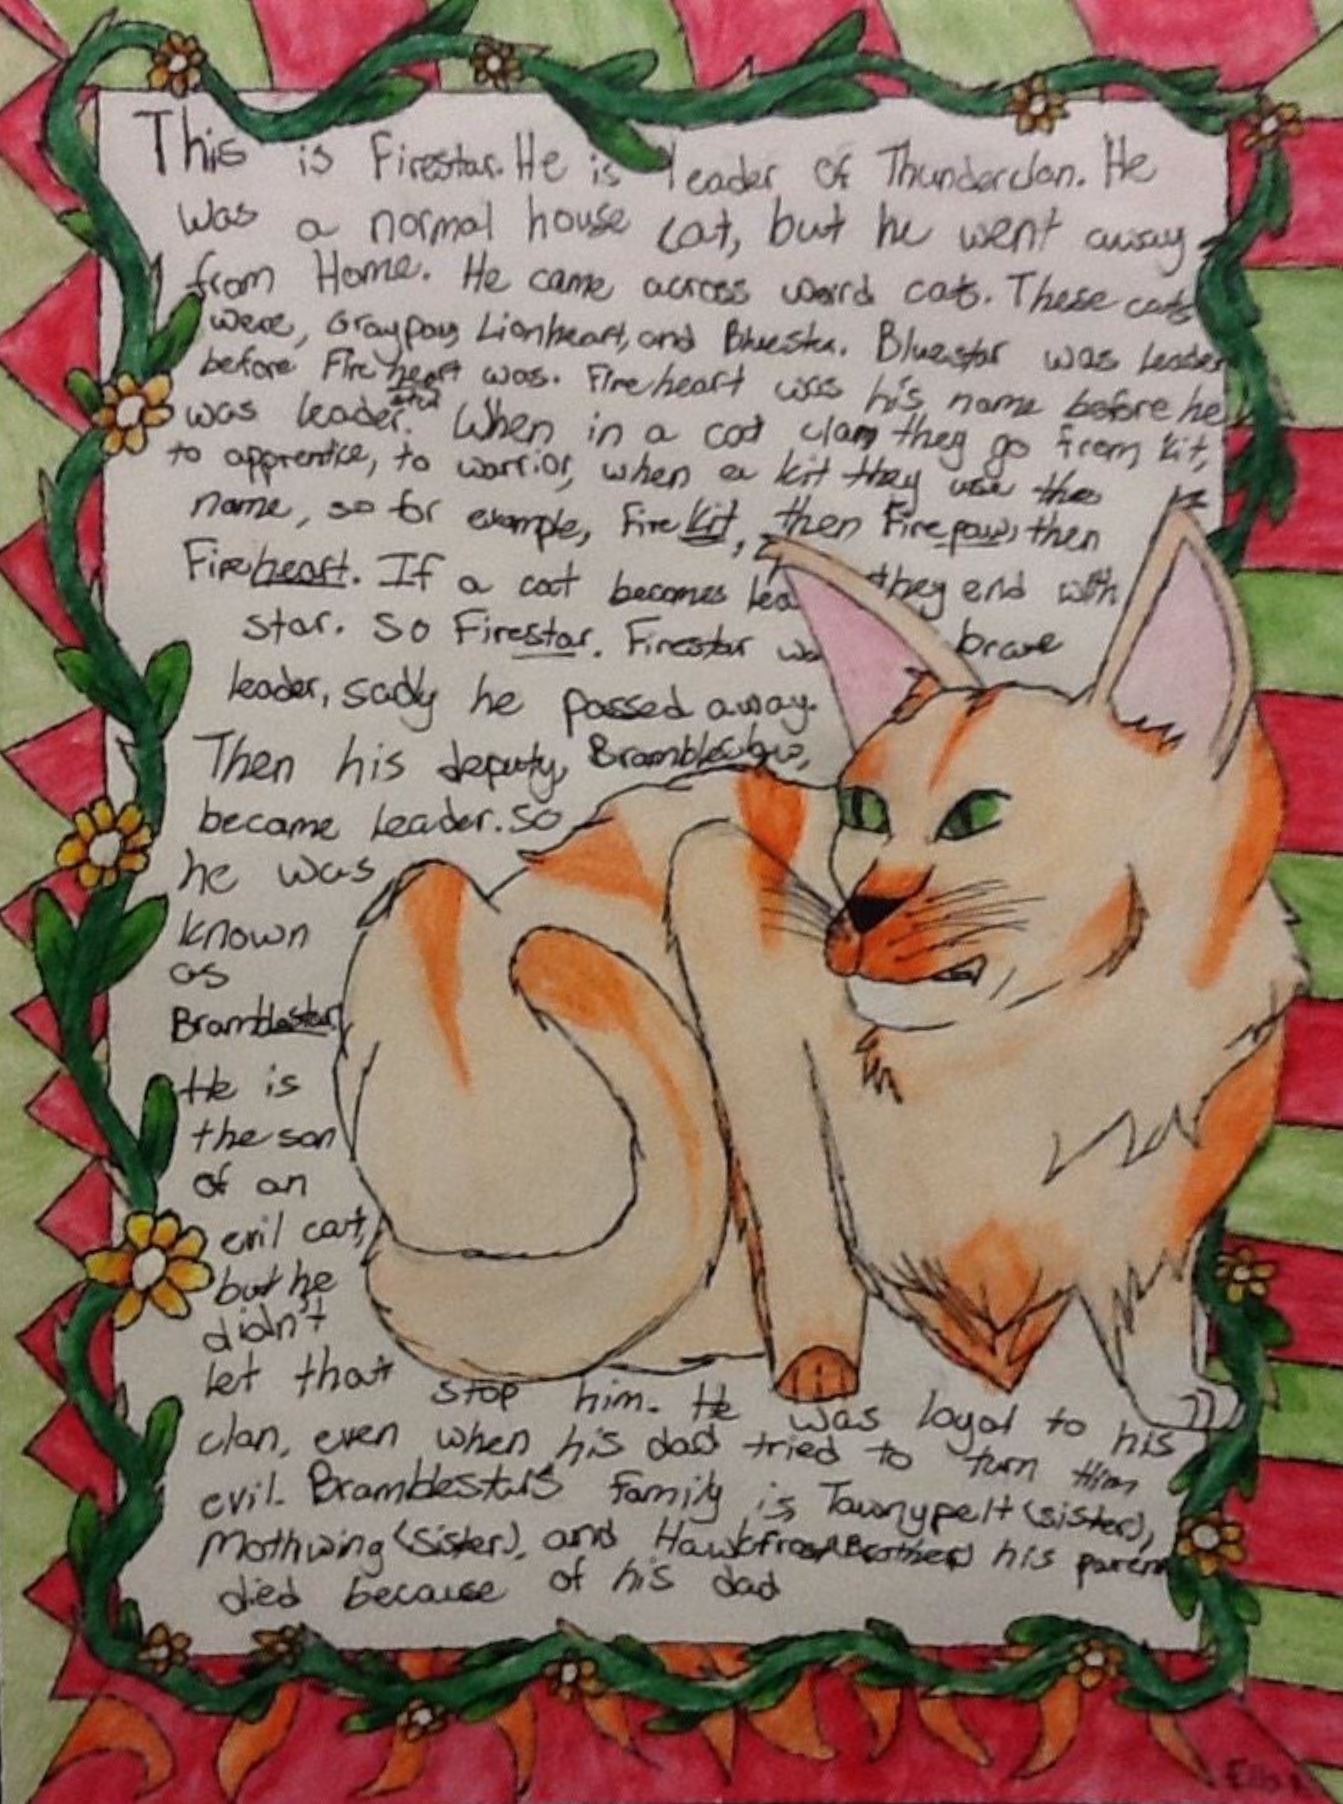 This is Firestar. He is leader of Thunderclan. He
was a normal house cat, but he went away
from Home. He came across weird cats. These cats
were, Graypaw, Lionheart, and Bluestar. Bluestar was leader
before Fireheart was. Fireheart was his name before he
was leader. When in a cat clan, they go from kit,
star
to apprentice, to warrior, when a kit they use the
name, so for example, Firekit, then Firepaw, then
Fireheart. If a cat becomes lea they end with
star. So Firestar. Firestar wa brave
leader, sadly he passed away.
Then his deputy, Brambleclaw,
became leader. So
he was
known
as
Bramblestar.
He is
the son
of an
evil cat,
but he
didn't
let that stop him. He was loyal to his
clan, even when his dad tried to turn Him
evil. Bramblestar's family is Tawnypelt (sister),
Mothwing (sister), and Hawkfrost (Brother) his paren
died because of his dad